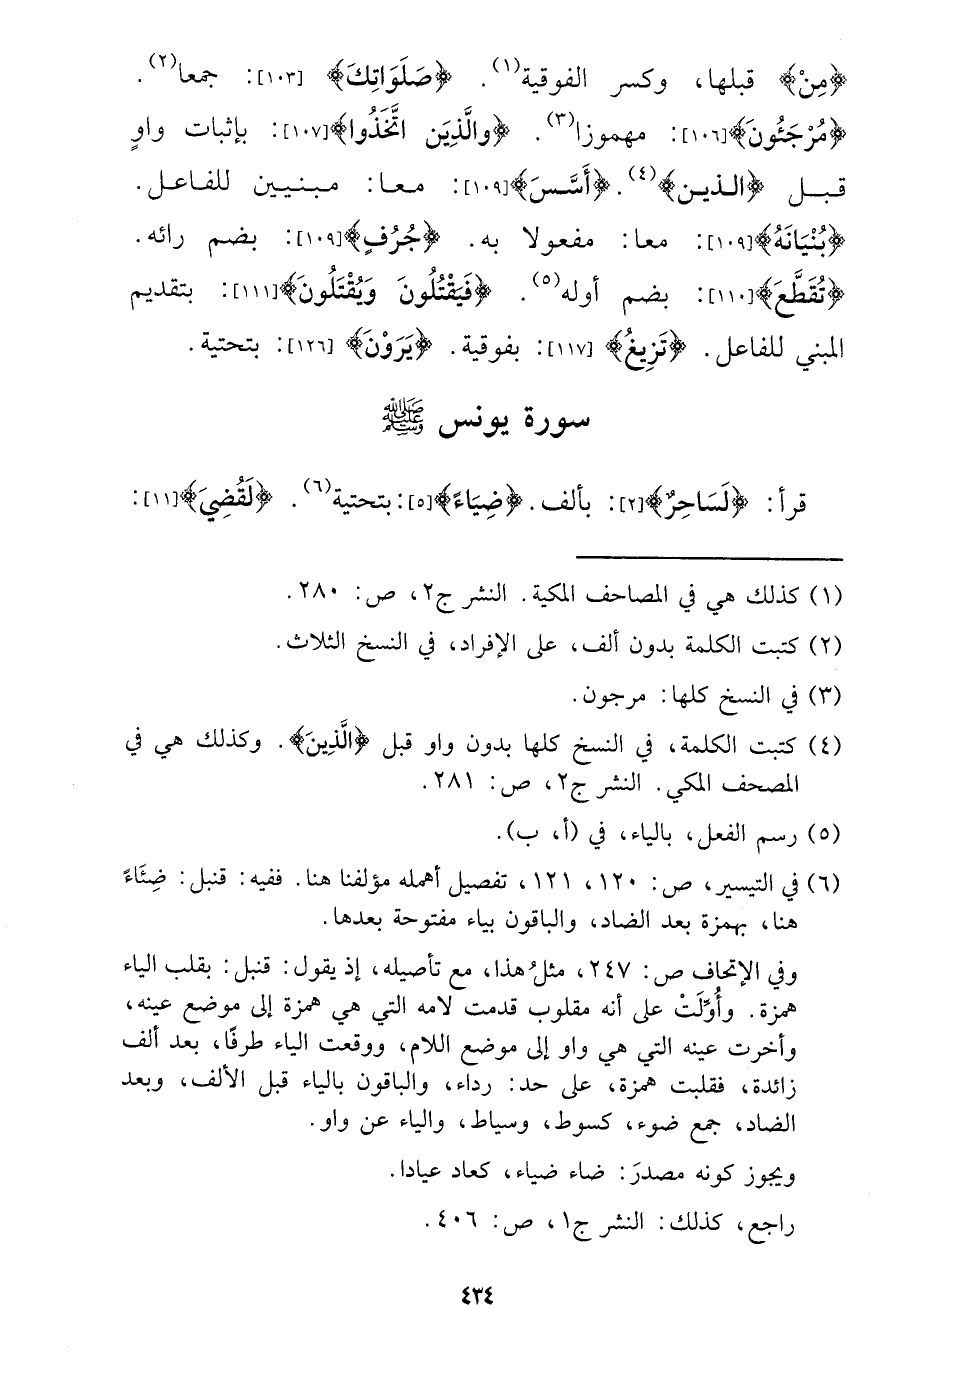 ﴿مِنْ﴾ قبلها، وكسر الفوقية(١). ﴿صَلَوَاتِكَ﴾ [١٠٣]: جمعا(٢).
﴿مُرْجَئُونَ﴾[١٠٦]: مهموزا(٣). ﴿والَّذِينَ اتَّخَذُوا﴾[١٠٧]: بإثبات واوٍ
قبل ﴿الذين﴾(٤). ﴿أَسَّسَ﴾[١٠٩]: معا: مبنيين للفاعل.
﴿بُنْيَانَهُ﴾[١٠٩]: معا: مفعولا به. ﴿جُرُفٍ﴾[١٠٩]: بضم رائه.
﴿تُقَطَّعَ﴾[١١٠]: بضم أوله(٥). ﴿فَيَقْتُلُونَ وَيُقْتَلُونَ﴾[١١١]: بتقديم
المبني للفاعل. ﴿تَزِيغُ﴾ [١١٧]: بفوقية. ﴿يَرَوْنَ﴾ [١٢٦]: بتحتية.
سورة يونس ﷺ
قرأ: ﴿لَسَاحِرٌ﴾[٢]: بألف. ﴿ضِيَاءً﴾[٥]: بتحتية(٦). ﴿لَقُضِيَ﴾[١١]:
(١) كذلك هي في المصاحف المكية. النشر ج٢، ص: ٢٨٠.
(٢) كتبت الكلمة بدون ألف، على الإفراد، في النسخ الثلاث.
(٣) في النسخ كلها: مرجون.
(٤) كتبت الكلمة، في النسخ كلها بدون واو قبل ﴿الَّذِينَ﴾. وكذلك هي في
المصحف المكي. النشر ج٢، ص: ٢٨١.
(٥) رسم الفعل، بالياء، في (أ، ب).
(٦) في التيسير، ص: ١٢٠، ١٢١، تفصيل أهمله مؤلفنا هنا. ففيه: قنبل: ضِئَاءً
هنا، بهمزة بعد الضاد، والباقون بياء مفتوحة بعدها.
وفي الإتحاف ص: ٢٤٧، مثلُ هذا، مع تأصيله، إذ يقول: قنبل: بقلب الياء
همزة. وأُوِّلَتْ على أنه مقلوب قدمت لامه التي هي همزة إلى موضع عينه،
وأخرت عينه التي هي واو إلى موضع اللام، ووقعت الياء طرفًا، بعد ألف
زائدة، فقلبت همزة، على حد: رداء، والباقون بالياء قبل الألف، وبعد
الضاد، جمع ضوء، كسوط، وسياط، والياء عن واو.
ويجوز كونه مصدرَ: ضاء ضياء، كعاد عيادا.
راجع، كذلك: النشر ج١، ص: ٤٠٦.
٤٣٤